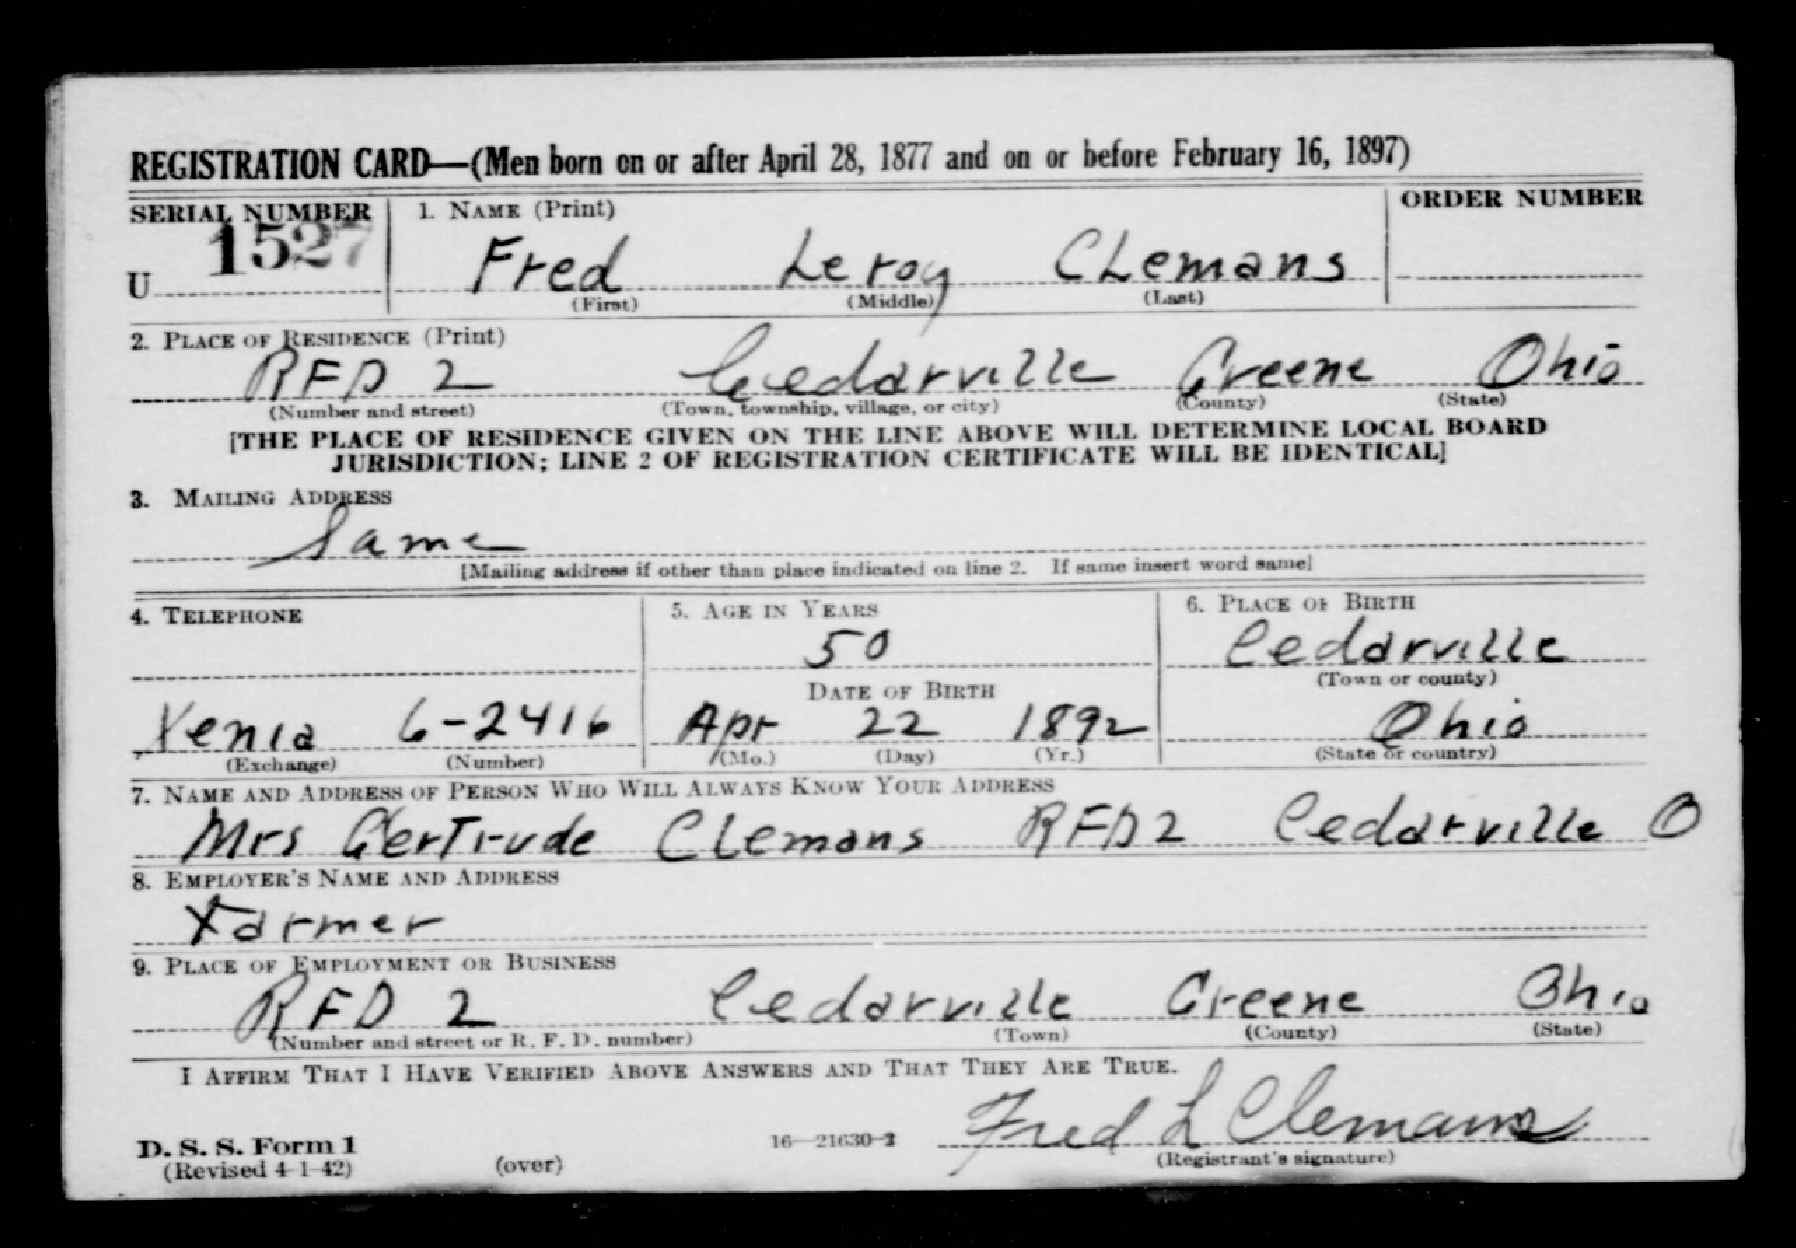 REGISTRATION CARD—(Men born on or after April 28, 1877 and on or before February 16, 1897)
SERIAL NUMBER 1. NAME (Print) ORDER NUMBER
U 1527 Fred Leroy CLemans
(First) (Middle) (Last)
2. PLACE OF RESIDENCE (Print)
RFD 2 Cedarville Greene Ohio
(Number and street) (Town, township, village, or city) (County) (State)
[THE PLACE OF RESIDENCE GIVEN ON THE LINE ABOVE WILL DETERMINE LOCAL BOARD
JURISDICTION; LINE 2 OF REGISTRATION CERTIFICATE WILL BE IDENTICAL]
3. MAILING ADDRESS
Same
[Mailing address if other than place indicated on line 2. If same insert word same]
4. TELEPHONE 5. AGE IN YEARS 6. PLACE OF BIRTH
50 Cedarville
DATE OF BIRTH (Town or county)
Xenia 6-2416 Apr 22 1892 Ohio
(Exchange) (Number) (Mo.) (Day) (Yr.) (State or country)
7. NAME AND ADDRESS OF PERSON WHO WILL ALWAYS KNOW YOUR ADDRESS
Mrs Gertrude Clemans RFD 2 Cedarville O
8. EMPLOYER'S NAME AND ADDRESS
Farmer
9. PLACE OF EMPLOYMENT OR BUSINESS
RFD 2 Cedarville Greene Ohio
(Number and street or R. F. D. number) (Town) (County) (State)
I AFFIRM THAT I HAVE VERIFIED ABOVE ANSWERS AND THAT THEY ARE TRUE.
D. S. S. Form 1 16—21630-2 Fred L Clemans
(Revised 4-1-42) (over) (Registrant's signature)